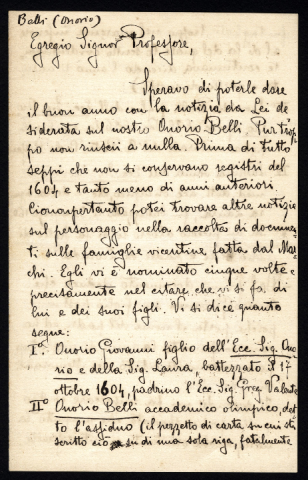 Belli (Onorio)
Egregio Signor Professore,
Speravo di poterle dare
il buon anno con la notizia da Lei de
siderata sul nostro Onorio Belli. Purtrop
po non riuscii a nulla. Prima di tutto
seppi che non si conservano registri del
1604 e tanto meno di anni anteriori.
Ciononpertanto potei trovare altre notizie
sul personaggio nella raccolta di documen
ti sulle famiglie vicentine fatta dal Mar
chi. Egli vi è nominato cinque volte e
precisamente nel citare che vi si fa di
lui e dei suoi figli. Vi si dice quanto
segue:
I° Onorio Giovanni figlio dell'Ecc. Sig. Ono
rio e della Sig. Laura, battezzato il 17
ottobre 1604, padrino l'Ecc. Sig. Greg. Valente
II° Onorio Belli accademico olimpico, det
to l'assiduo (il pezzetto di carta su cui sta
scritto ciò su di una sola riga, fatalmente